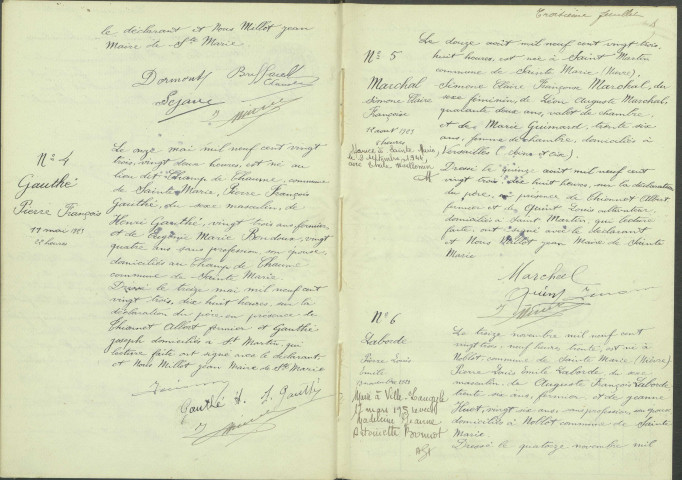 le déclarant et Nous Millot jean
Maire de Ste Marie.
Dormont
Sejault
N° 4
Gauthé
Pierre François
11 mai 1923
22 heures
Le onze mai mil neuf cent vingt
trois, vingt deux heures, est né au
lieu dit Champ de Chaume, commune
de Sainte Marie, Pierre François
Gauthé, du sexe masculin de
Henri Gauthé, vingt trois ans fermier,
et de Eugénie Marie Bondoux, vingt
quatre ans sans profession, son épouse,
domiciliés au Champ de Chaume
commune de Sainte Marie
Dressé le treize mai mil neuf cent
vingt trois, dix huit heures, sur la
déclaration du père en présence de
Thionnet Albert fermier et Gauthé
joseph domiciliés à St Martin, qui
lecture faite ont signé avec le déclarant
et Nous Millot jean Maire de Ste Marie
Gauthé H. J. Gauthé
Troisième feuille
N° 5
Marchal
Simone Claire
Françoise
12 août 1923
8 heures
Mariée à Sainte Marie,
le 2 septembre 1944
avec
Le douze août mil neuf cent vingt trois,
huit heures, est née à Saint Martin
commune de Sainte Marie (Nièvre),
Simone Claire Françoise Marchal, du
sexe féminin, de Léon Auguste Marchal,
quarante deux ans, valet de chambre,
et de Marie Guimard, trente six
ans, femme de chambre, domiciliés à
Versailles (Seine et Oise)
Dressé le quinze août mil neuf cent
vingt trois, dix huit heures, sur la déclaration
du père, en présence de Thionnet Albert
fermier et de Guint Louis cultivateur,
domiciliés à Saint Martin, qui lecture
faite, ont signé avec le déclarant
et Nous Millot jean Maire de Sainte
Marie
Marchal
N° 6
Laborde
Pierre Louis
Emile
13 novembre 1923
Marié à Ville-Langy le
17 mars 195 avec
Madeleine Jeanne
Antoinette
Le treize novembre mil neuf cent
vingt trois, neuf heures trente, est né à
Noblot commune de Sainte Marie (Nièvre)
Pierre Louis Emile Laborde du sexe
masculin de Auguste François Laborde
trente six ans, fermier, et de jeanne
Huot, vingt six ans, sans profession, son épouse
domiciliés à Noblot commune de Sainte
Marie
Dressé le quatorze novembre mil